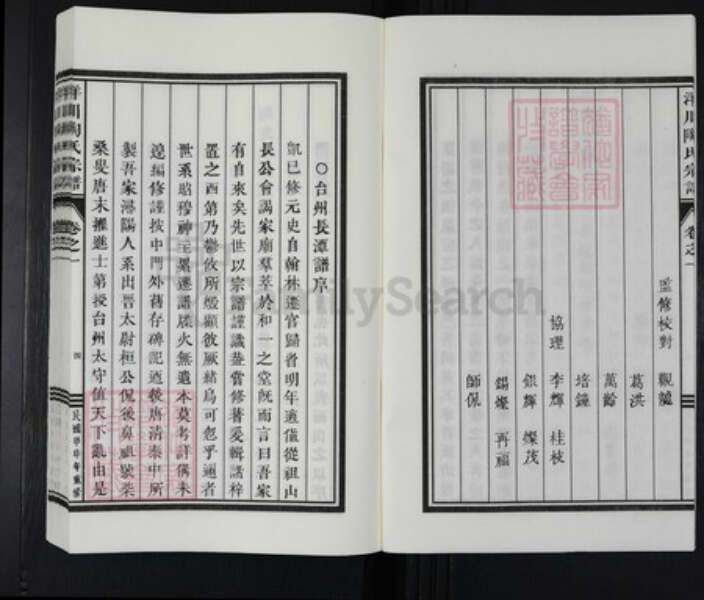 洋川陶氏宗譜
卷之一
監修校對 觀鑪
葛洪
萬齡
培鐘
協理 李輝 桂枝
銀輝 燦茂
錫燦 再福
師侃
○台州長潭譜序
凱已修元史自翰林遷官歸省明年適值從祖山
長公會謁家廟羣萃於和一之堂既而言曰吾家
有自來矣先世以宗譜謹識蓋嘗修葺爰輯諸梓
置之西第乃鬱攸所燬顯彼厥緒烏可忽乎邇者
世系昭穆神主累遷譜牒火無遺本莫考詳偶未
遑編修謹按中門外舊存碑記迺後唐清泰中所
製吾家潯陽人系出晉太尉桓公侃後鼻祖號柴
桑叟唐末擢進士第授台州太守值天下亂由是
洋川陶氏宗譜
卷之一
四
民國甲申年重修
FamilySearch